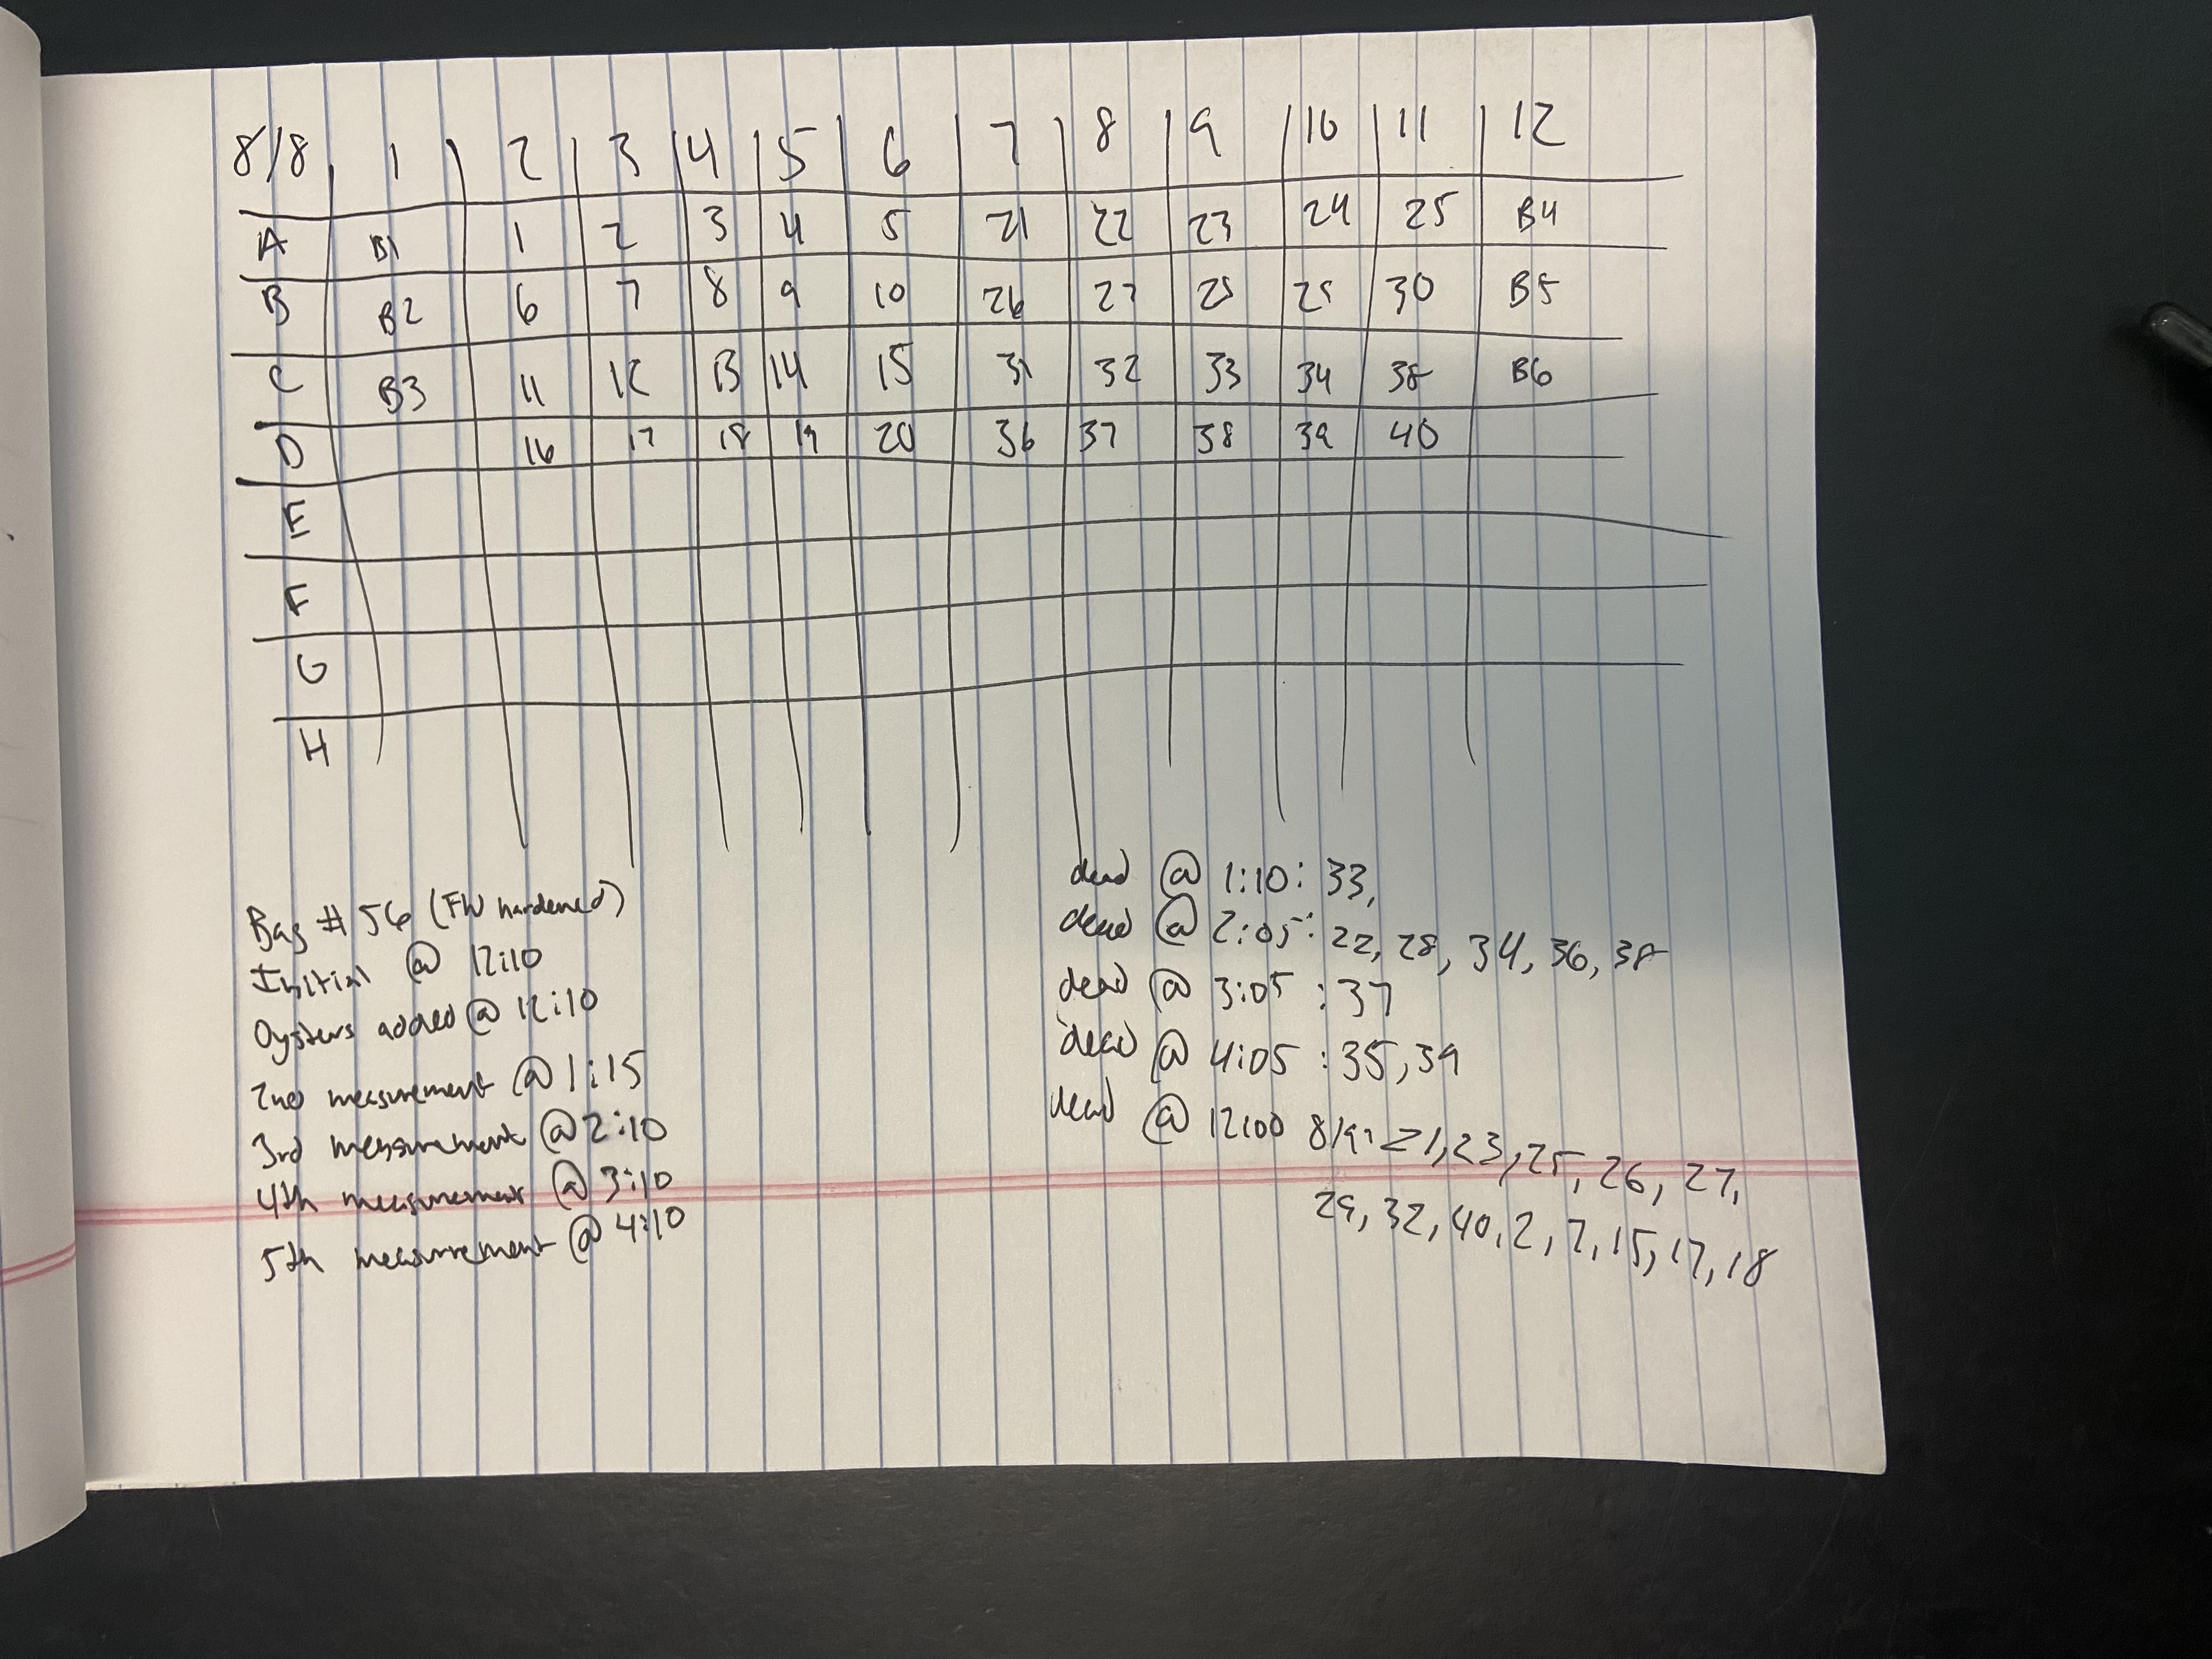 8/8 1 2 3 4 5 6 7 8 9 10 11 12
A B1 1 2 3 4 5 21 22 23 24 25 B4
B B2 6 7 8 9 10 26 27 28 29 30 B5
C B3 11 12 13 14 15 31 32 33 34 35 B6
D 16 17 18 19 20 36 37 38 39 40
E
F
G
H
Bag # 56 (FW hardened)
Initial @ 12:10
Oysters added @ 12:10
2nd measurement @ 1:15
3rd measurement @ 2:10
4th measurement @ 3:10
5th measurement @ 4:10
dead @ 1:10: 33,
dead @ 2:05: 22, 28, 34, 36, 38
dead @ 3:05 : 37
dead @ 4:05 : 35, 39
dead @ 12:00 8/9: 21, 23, 25, 26, 27,
29, 32, 40, 2, 7, 15, 17, 18